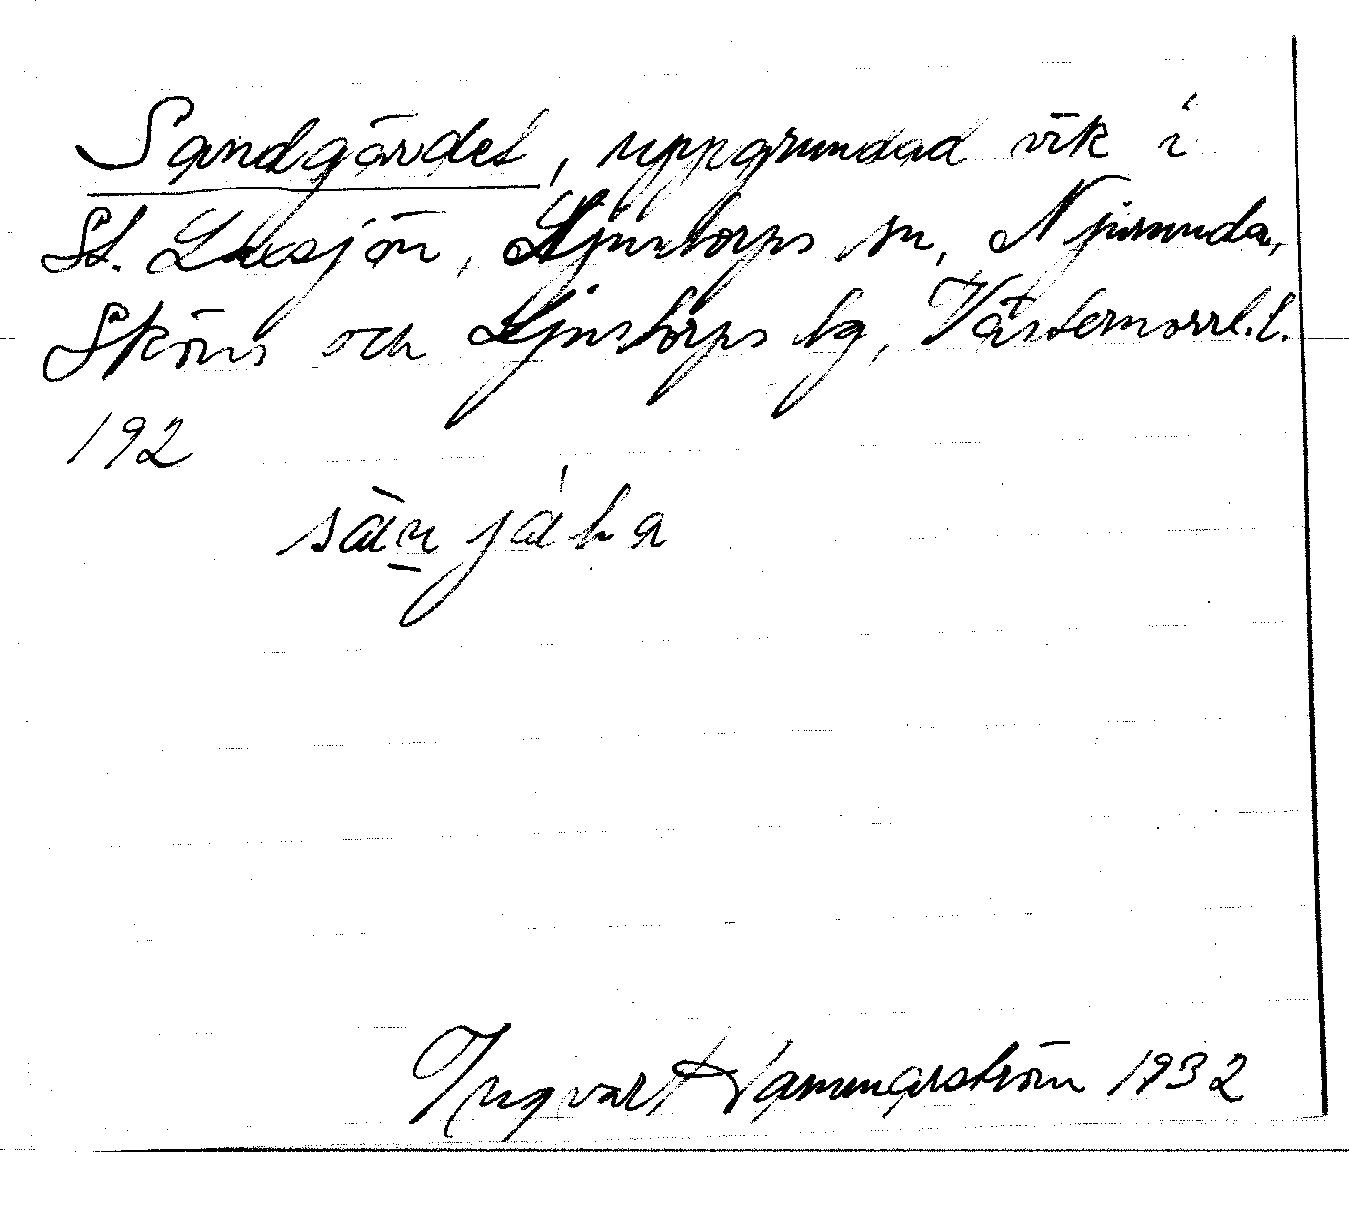 Sandgärdet, uppgrundad vik i
St. Laxsjön, Ljustorps sn, Njurunda,
Sköns och Ljustorps tg, Västernorrl. l.
192
Ingvar Hammarström 1932